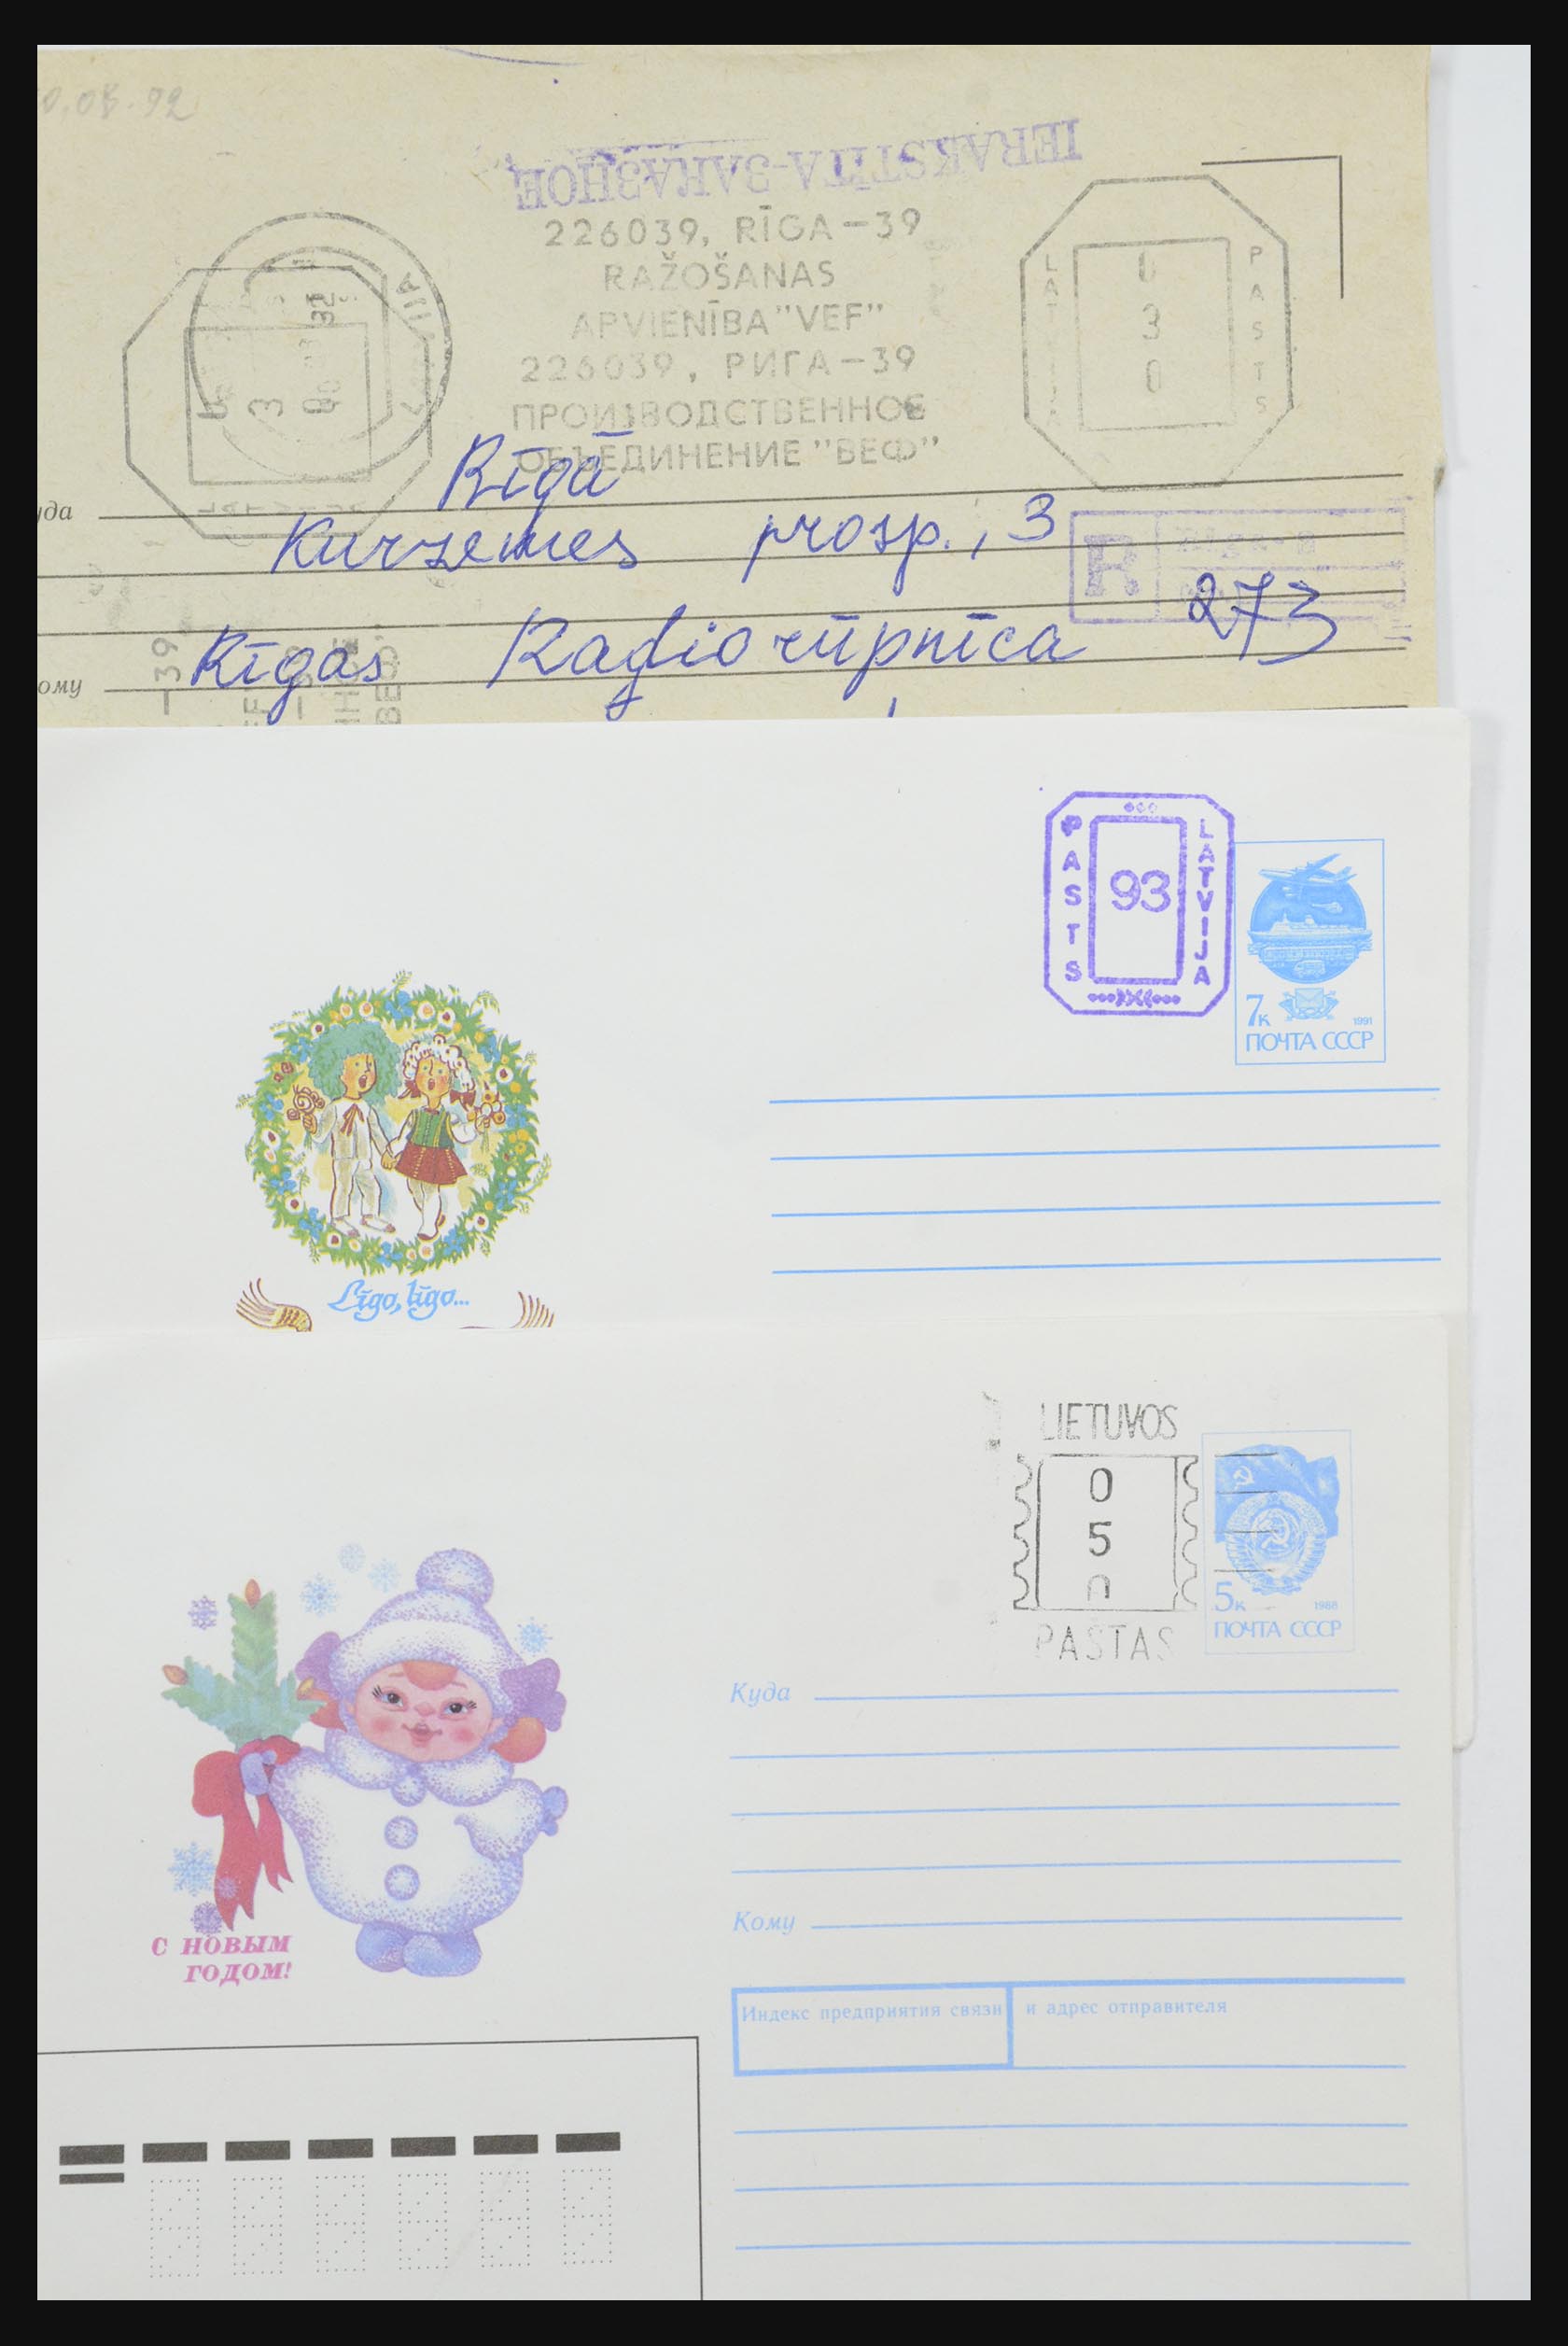 0.08.92
IERAKSTĪTA-ЗАКАЗНОЕ
226039, RĪGA-39
RAŽOŠANAS
APVIENĪBA "VEF"
226039, РИГА-39
ПРОИЗВОДСТВЕННОЕ
ОБЪЕДИНЕНИЕ "ВЕФ"
LATVIJA
0
3
0
PASTS
Rīgā
уда
Kurzemes prosp., 3
R
273
Rīgas Radiorūpnīca
ому
-39
PASTS
93
LATVIJA
7к
1991
ПОЧТА СССР
Līgo, līgo...
LIETUVOS
0
5
0
PAŠTAS
5к
1988
ПОЧТА СССР
Куда
Кому
С НОВЫМ
ГОДОМ!
Индекс предприятия связи и адрес отправителя